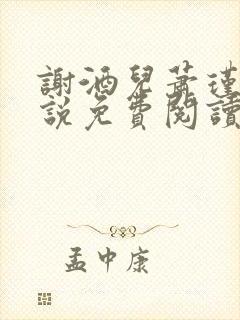 謝酒兒蕭瑾
說免費閱讀
孟中康